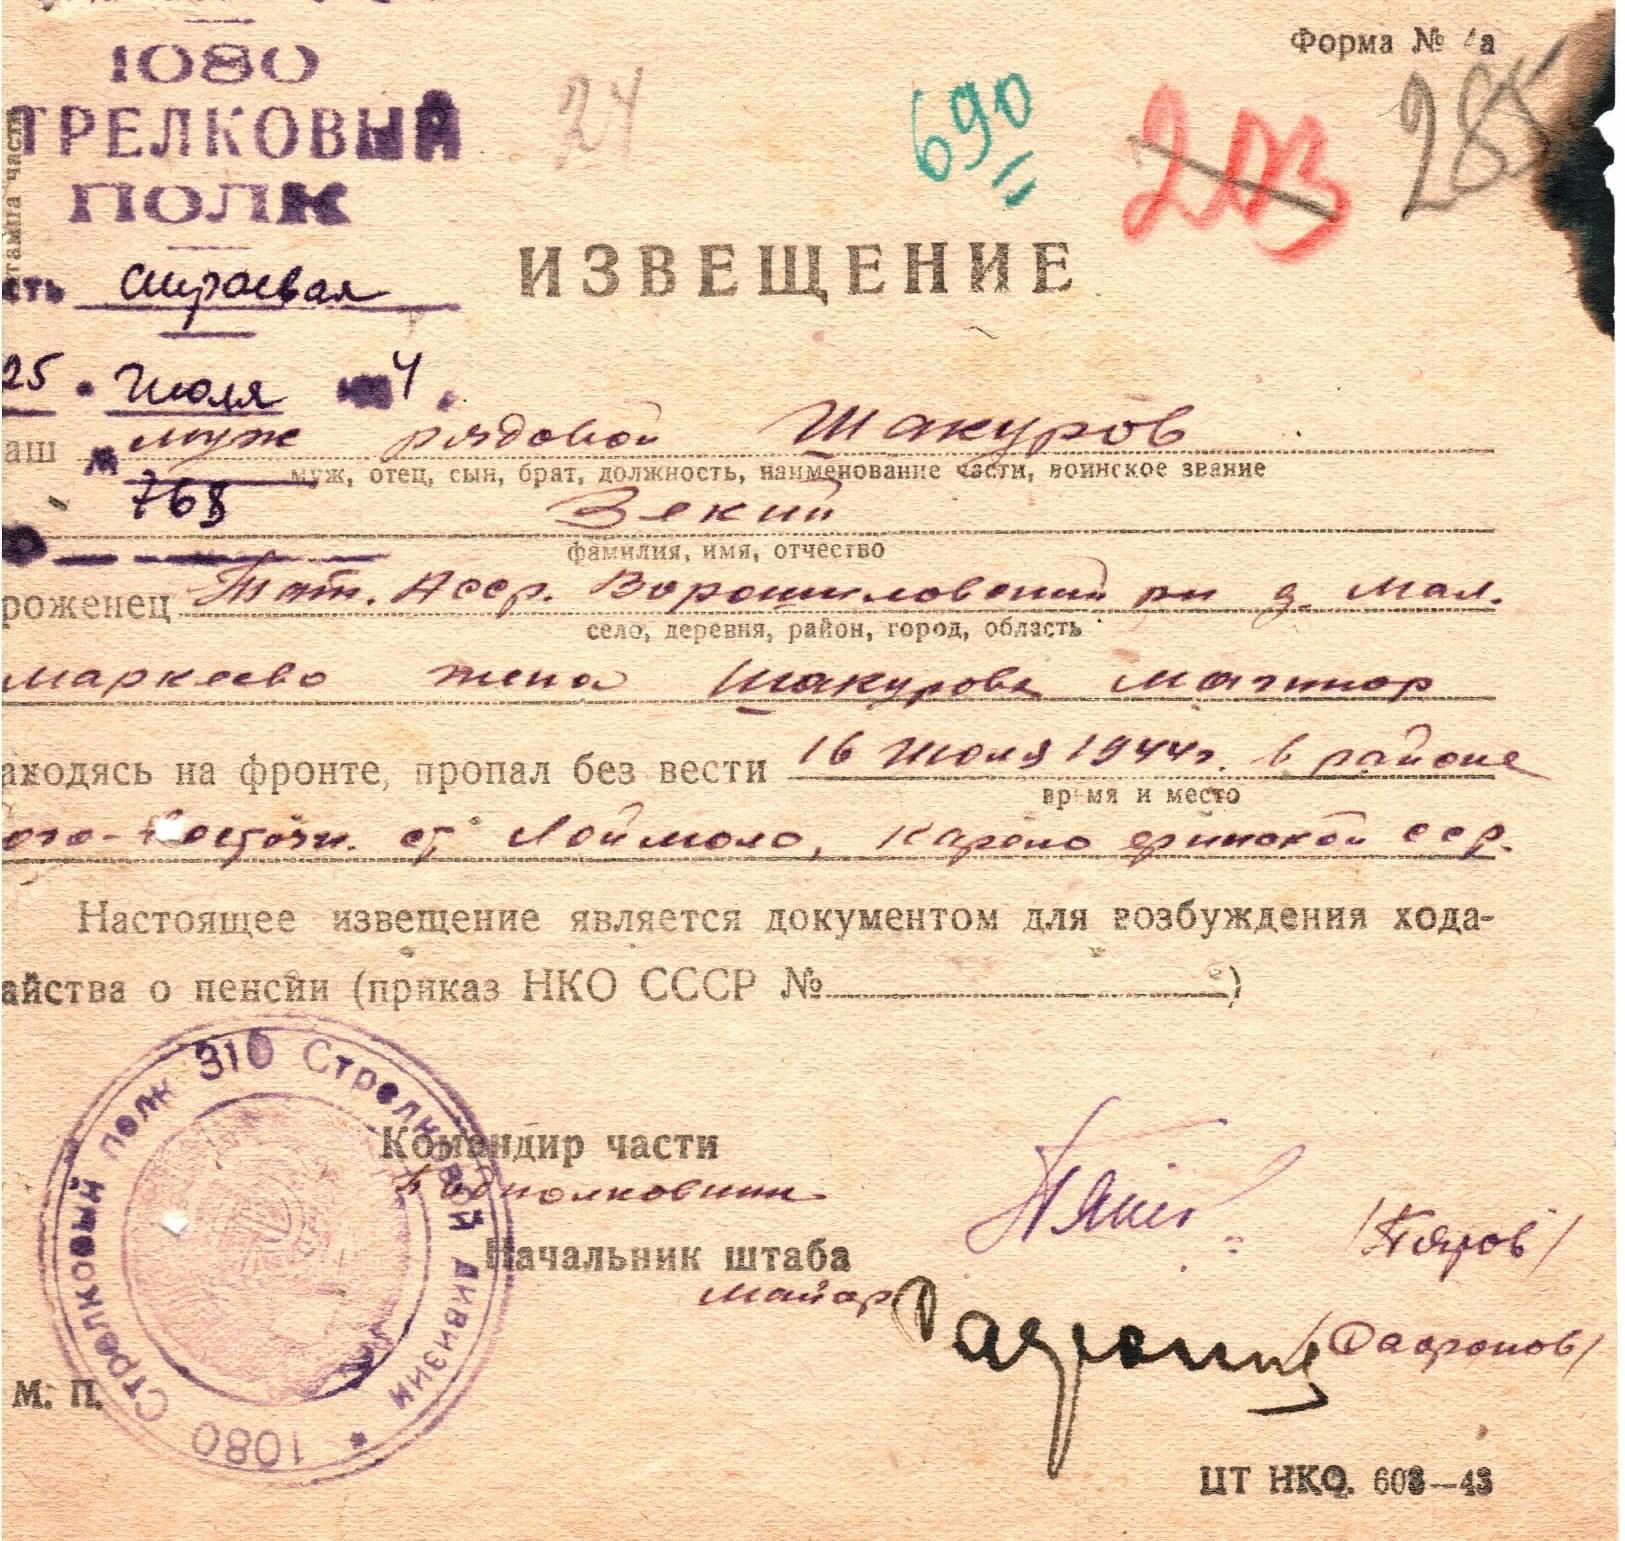 Форма № 4а
1080
ТРЕЛКОВЫЙ
ПОЛК
24
690
203
285
штампа части
сть строевая
ИЗВЕЩЕНИЕ
25 Июля 4
аш муж рядовой Шакуров
№ 768
муж, отец, сын, брат, должность, наименование части, воинское звание
Зекий
фамилия, имя, отчество
роженец Тат. АССР. Ворошиловский рн д. Мал.
село, деревня, район, город, область
маркеево жена Шакурова
аходясь на фронте, пропал без вести 16 Июля 1944г. в районе
время и место
юго-Восточн. ст Лоймоло, Карело финской сср.
Настоящее извещение является документом для возбуждения хода-
айства о пенсии (приказ НКО СССР № )
Командир части
Подполковник
Начальник штаба
майор
/Сафронов/
М. П.
1080 Стрелковый полк 310 Стрелковой дивизии *
ЦТ НКО. 603—43